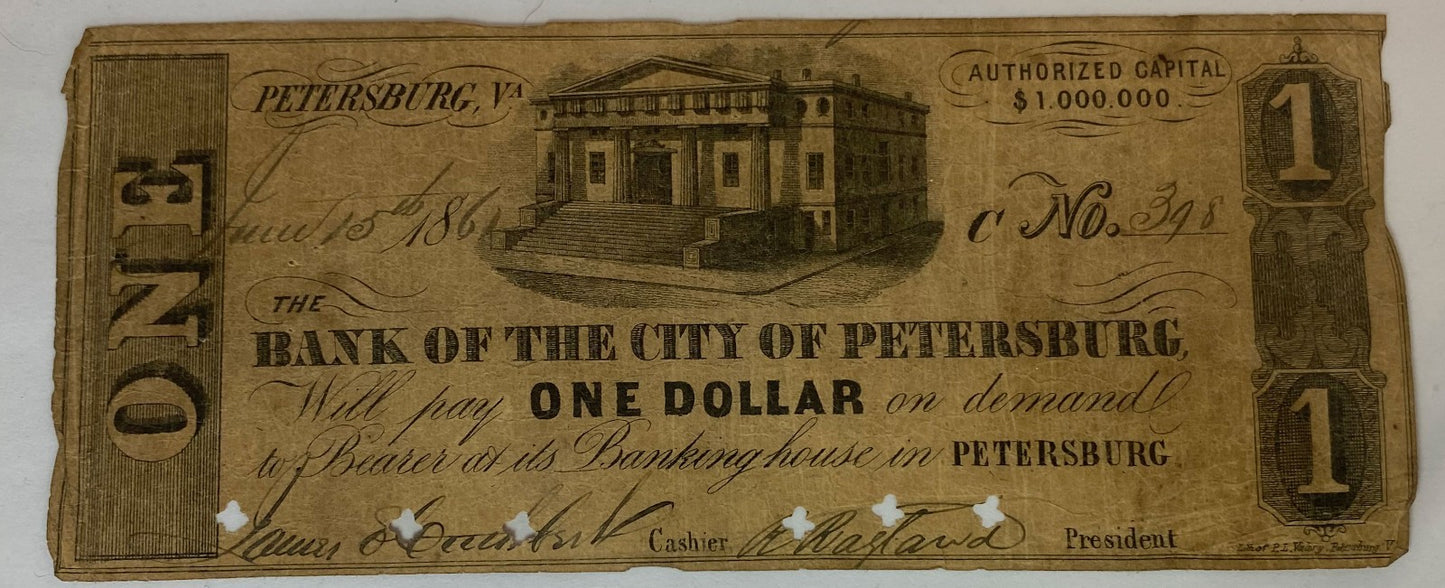 ONE
PETERSBURG, VA
AUTHORIZED CAPITAL
$1.000.000.
1
June 15th 1861
C No. 398
THE
BANK OF THE CITY OF PETERSBURG,
Will pay ONE DOLLAR on demand
to Bearer at its Banking house in PETERSBURG
1
James Cashier R Ragland President
Lith. of P.L. Petersburg V